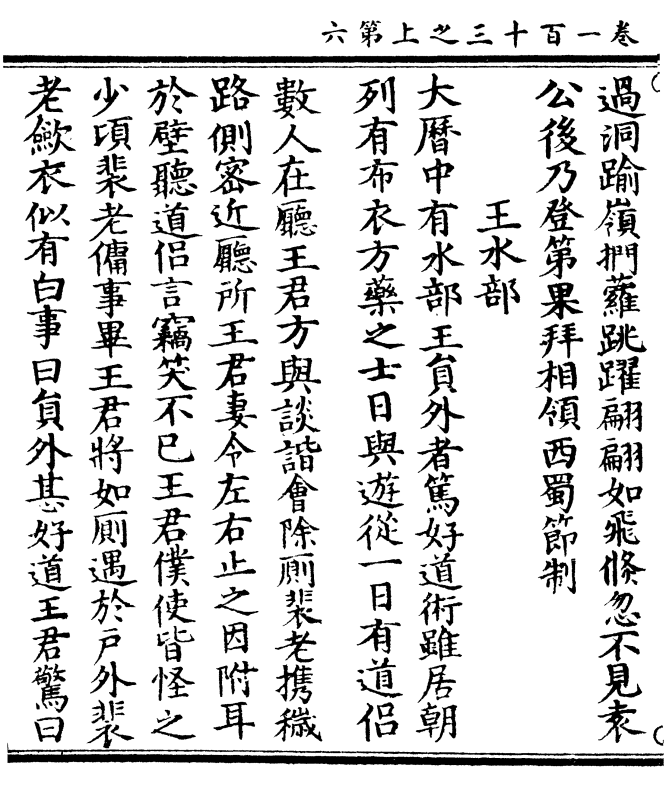 卷一百十三之上第六
過洞踰嶺捫蘿跳躍翩翩如飛倏忽不見袁
公後乃登第果拜相領西蜀節制
王水部
大曆中有水部王員外者篤好道術雖居朝
列有布衣方藥之士日與遊從一日有道侶
數人在廳王君方與談諧會除厠裴老携穢
路側密近廳所王君妻令左右止之因附耳
於壁聽道侶言竊笑不已王君僕使皆怪之
少頃裴老傭事畢王君將如厠遇於戶外裴
老斂衣似有白事曰員外甚好道王君驚曰